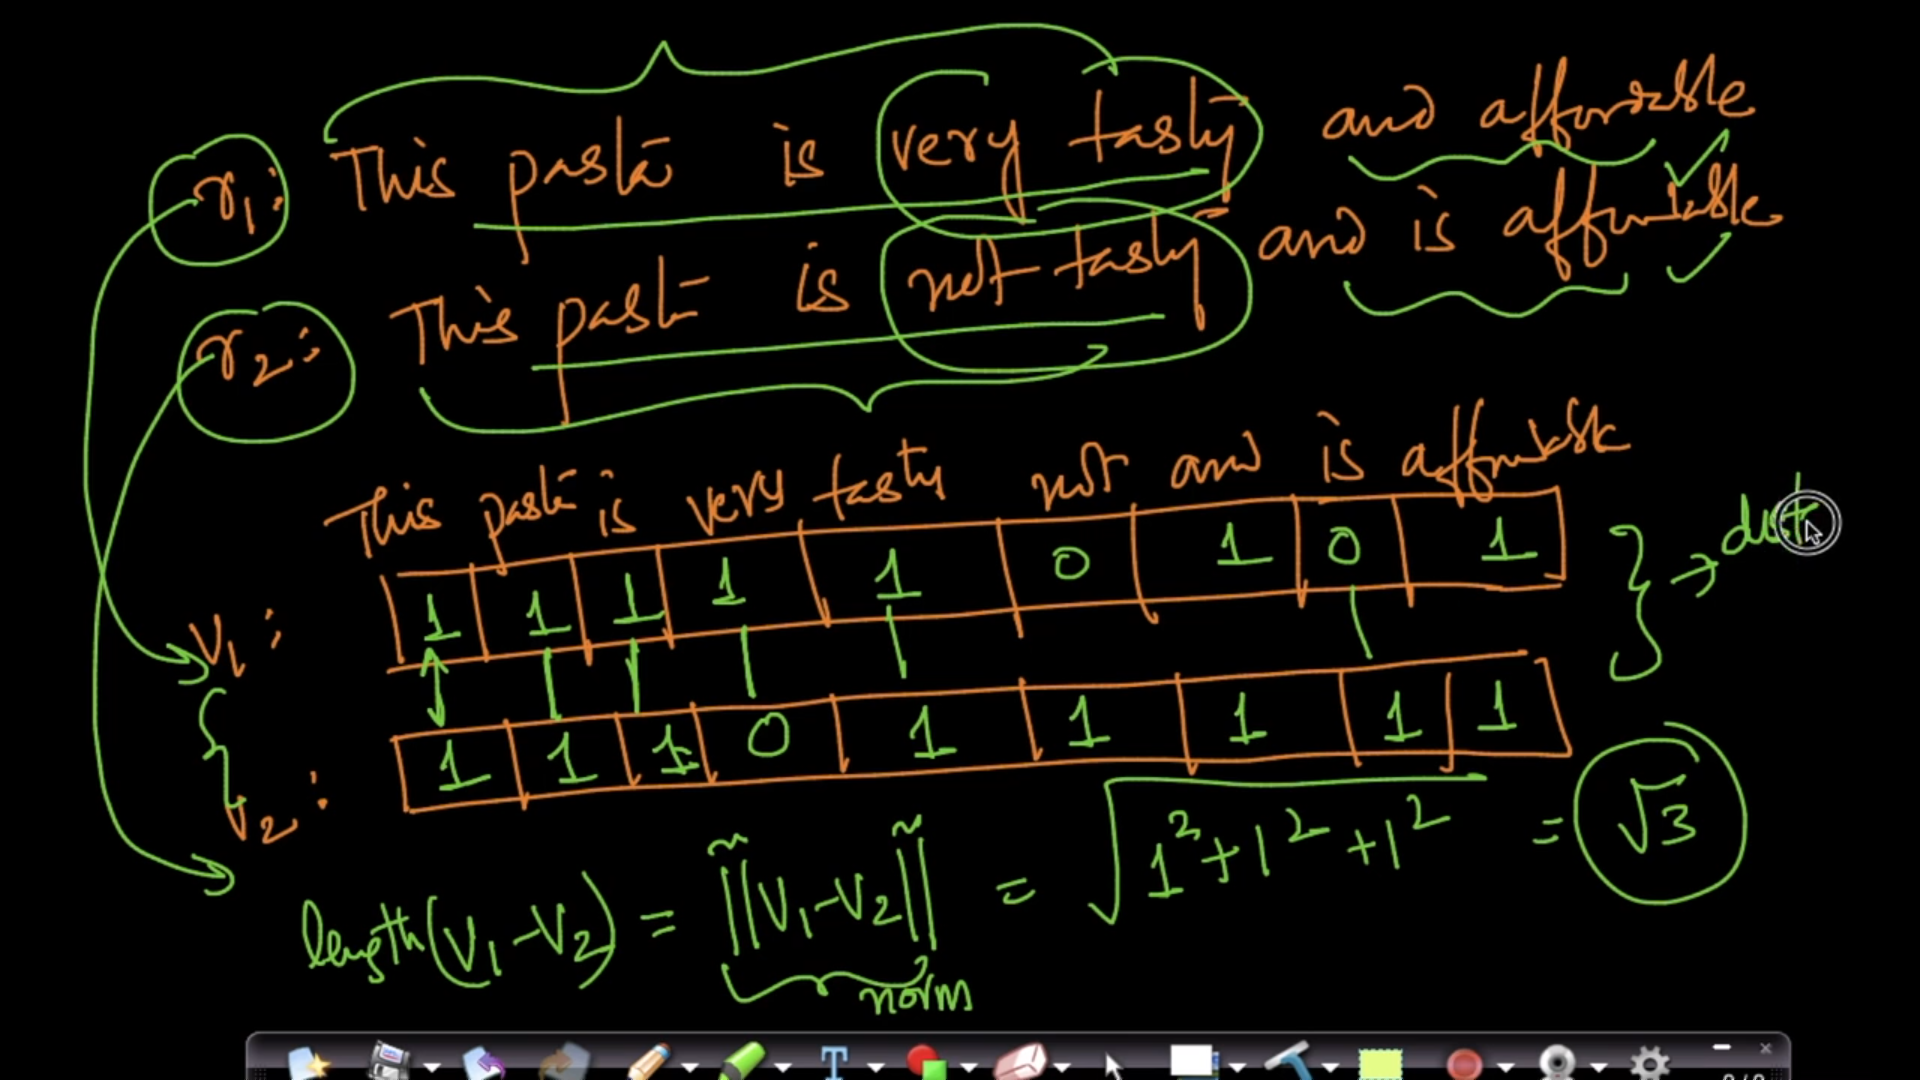 r1: This pasta is very tasty and affordable
r2: This pasta is not tasty and is affordable
This pasta is very tasty not and is affordable
v1: 1 1 1 1 1 0 1 0 1 } → dist
v2: 1 1 1 0 1 1 1 1 1
length(v1-v2) = ||v1-v2|| = √1²+1²+1² = √3
norm
T